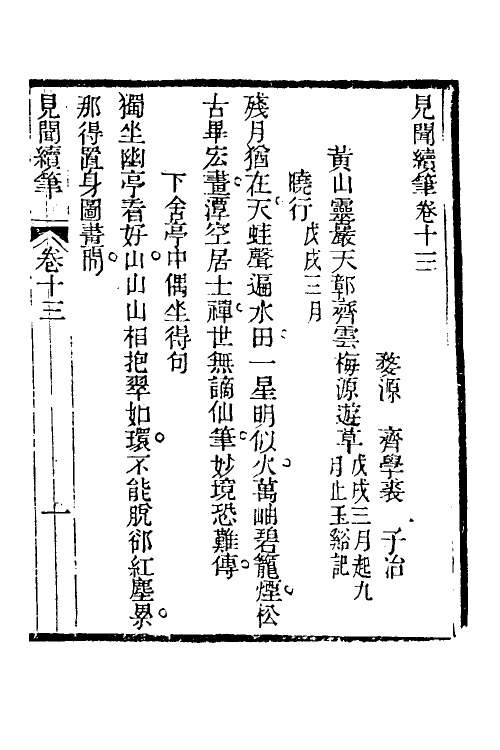 見聞續筆卷十三
婺源　齊學裘　子冶
黃山靈巖天鄣齊雲梅源遊草戊戌三月起九
月止玉谿記
曉行戊戌三月
殘月猶在天蛙聲遍水田一星明似火萬岫碧籠煙松
古畢宏畫潭空居士禪世無謫仙筆妙境恐難傳
下舍亭中偶坐得句
獨坐幽亭看好山山山相抱翠如環不能脫卻紅塵累
那得置身圖畫間
見聞續筆　卷十三　一